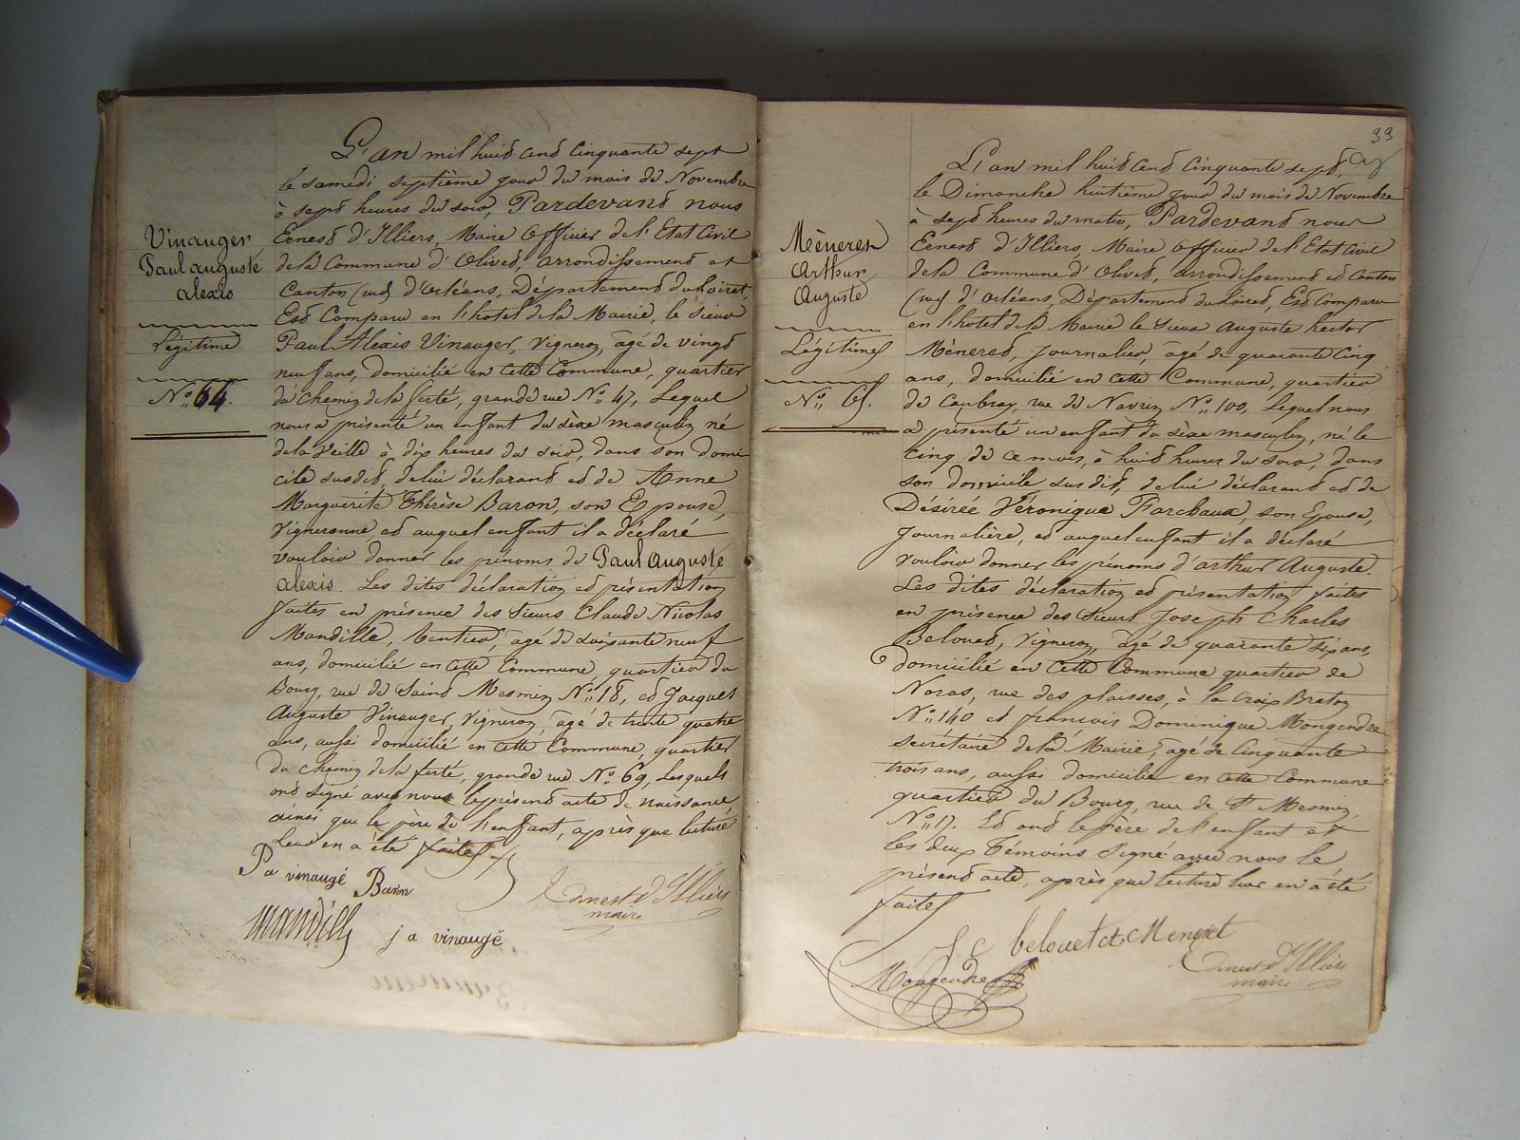 Vinauger
Paul auguste
alexis
Légitime
N° 64.
L'an mil huit cent cinquante sept
le samedi septième jour du mois de Novembre
à sept heures du soir, Pardevant nous
Ernest d'Illiers, Maire officier de l'Etat Civil
de la Commune d'Olivet, arrondissement et
Canton sud d'Orléans, Département du Loiret,
Est Comparu en l'hôtel de la Mairie, le sieur
Paul Alexis Vinauger, vigneron, âgé de vingt
neuf ans, domicilié en cette Commune, quartier
du chemin de la ferté, grande rue N° 47, Lequel
nous a présenté un enfant du sèxe masculin né
de la veille à dix heures du soir, dans son domi
cile susdit, de lui déclarant et de Anne
Marguerite Thérèse Baron, son Epouse,
vigneronne, et auquel enfant il a déclaré
vouloir donner les prénoms de Paul Auguste
alexis. Les dites déclaration et présentation
faites en présence des sieurs Claude Nicolas
Mandille, rentier, âgé de soixante neuf
ans, domicilié en cette Commune, quartier du
Bourg, rue de Saint Mesmin N° 18, et Jacques
Auguste Vinauger, vigneron, âgé de trente quatre
ans, aussi domicilié en cette Commune, quartier
du chemin de la ferté, grande rue N° 69, Lesquels
ont signé avec nous le présent acte de naissance,
ainsi que le père de l'enfant, après que lecture
leur en a été faite.
P a vinaugé Baron
Ernest d'Illiers
maire
mandille
j a vinaugé
33
Méneret
Arthur
Auguste
Légitime
N° 65.
L'an mil huit cent cinquante sept,
le Dimanche huitième jour du mois de Novembre
à sept heures du matin, Pardevant nous
Ernest d'Illiers, Maire officier de l'Etat Civil
de la Commune d'Olivet, arrondissement et Canton
sud d'Orléans, Département du Loiret, Est Comparu
en l'hôtel de la Mairie le sieur Auguste hector
Méneret, journalier, âgé de quarante cinq
ans, domicilié en cette Commune, quartier
de Caubray, rue de Navrin N° 100, Lequel nous
a présenté un enfant du sèxe masculin, né le
cinq de ce mois, à huit heures du soir, dans
son domicile susdit, de lui déclarant et de
Désirée Véronique Farchaux, son Epouse,
journalière, et auquel enfant il a déclaré
vouloir donner les prénoms d'arthur Auguste.
Les dites déclaration et présentation faites
en présence des sieurs Joseph Charles
Belouet, vigneron, âgé de quarante six ans,
domicilié en cette Commune quartier de
Noras, rue des plaisses, à la croix Breton
N° 140 et françois Dominique Mongendre
secrétaire de la Mairie, âgé de cinquante
trois ans, aussi domicilié en cette Commune
quartier du Bourg, rue de St Mesmin,
N° 17. Et ont le père de l'enfant et
les deux témoins signé avec nous le
présent acte, après que lecture leur en a été
faite
J C belouet a Meneret
Mongendre
Ernest d'Illiers
maire